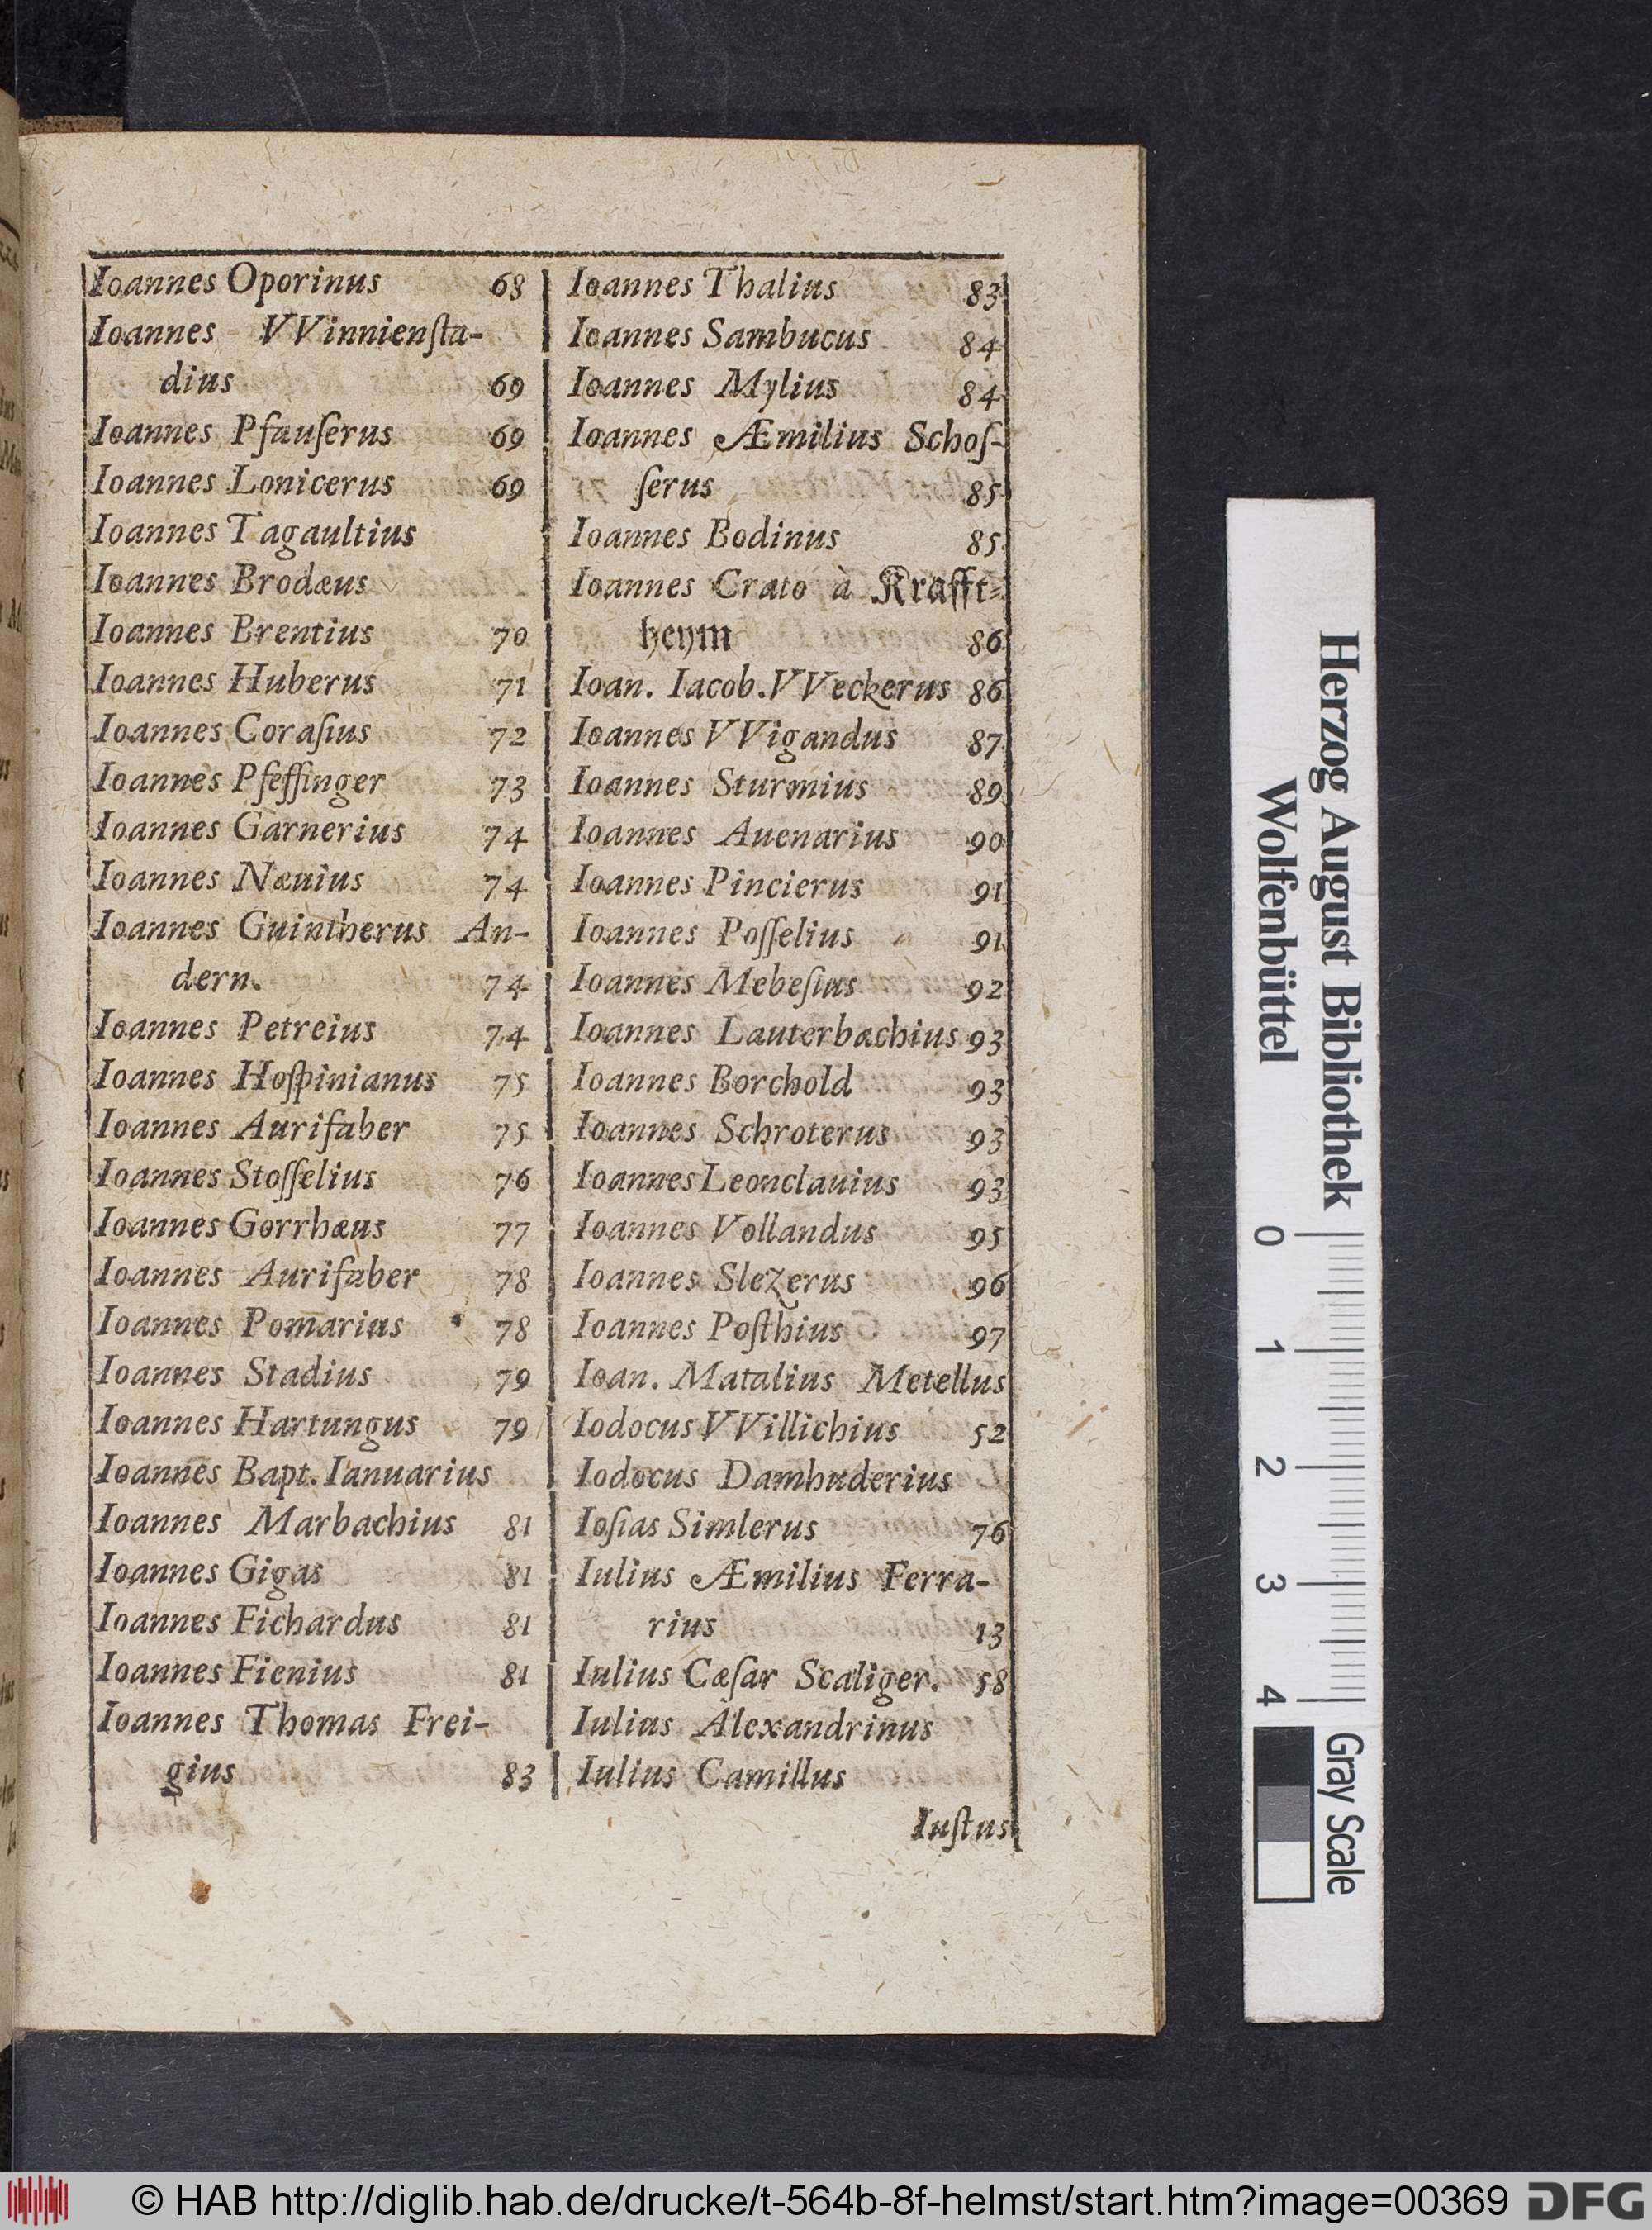 Ioannes Oporinus 68
Ioannes VVinnienſta-
dius 69
Ioannes Pfauſerus 69
Ioannes Lonicerus 69
Ioannes Tagaultius
Ioannes Brodæus
Ioannes Brentius 70
Ioannes Huberus 71
Ioannes Coraſius 72
Ioannes Pfeffinger 73
Ioannes Garnerius 74
Ioannes Næuius 74
Ioannes Guintherus An-
dern. 74
Ioannes Petreius 74
Ioannes Hoſpinianus 75
Ioannes Aurifaber 75
Ioannes Stoſſelius 76
Ioannes Gorrhæus 77
Ioannes Aurifaber 78
Ioannes Pomarius 78
Ioannes Stadius 79
Ioannes Hartungus 79
Ioannes Bapt. Ianuarius
Ioannes Marbachius 81
Ioannes Gigas 81
Ioannes Fichardus 81
Ioannes Fienius 81
Ioannes Thomas Frei-
gius 83
Ioannes Thalius 83
Ioannes Sambucus 84
Ioannes Mylius 84
Ioannes Æmilius Schoſ-
ſerus 85
Ioannes Bodinus 85
Ioannes Crato à Krafft-
heym 86
Ioan. Iacob. VVeckerus 86
Ioannes VVigandus 87
Ioannes Sturmius 89
Ioannes Auenarius 90
Ioannes Pincierus 91
Ioannes Poſſelius 91
Ioannes Mebeſius 92
Ioannes Lauterbachius 93
Ioannes Borchold 93
Ioannes Schroterus 93
Ioannes Leonclauius 93
Ioannes Vollandus 95
Ioannes Slezerus 96
Ioannes Poſthius 97
Ioan. Matalius Metellus
Iodocus VVillichius 52
Iodocus Damhuderius
Ioſias Simlerus 76
Iulius Æmilius Ferra-
rius 13
Iulius Cæſar Scaliger. 58
Iulius Alexandrinus
Iulius Camillus
Iuſtus
Herzog August Bibliothek
Wolfenbüttel
0 1 2 3 4
Gray Scale
© HAB http://diglib.hab.de/drucke/t-564b-8f-helmst/start.htm?image=00369 DFG